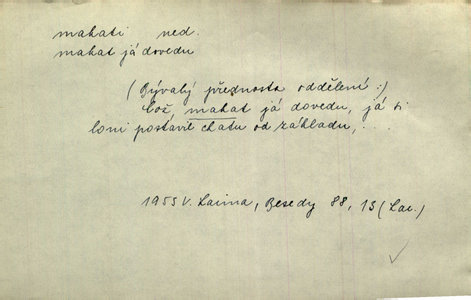 makati ned.
makat já dovedu
(Bývalý přednosta oddělení:)
Což, makat já dovedu, já si
loni postavil chatu od základu, ...
1953 V. Lacina, Besedy 88, 13 (Lac.)